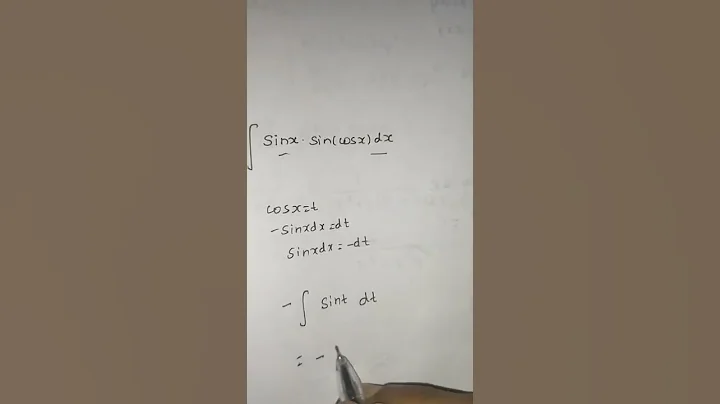 ∫ sinx · sin(cosx) dx
cosx=t
-sinxdx=dt
sinxdx=-dt
-∫ sint dt
= -